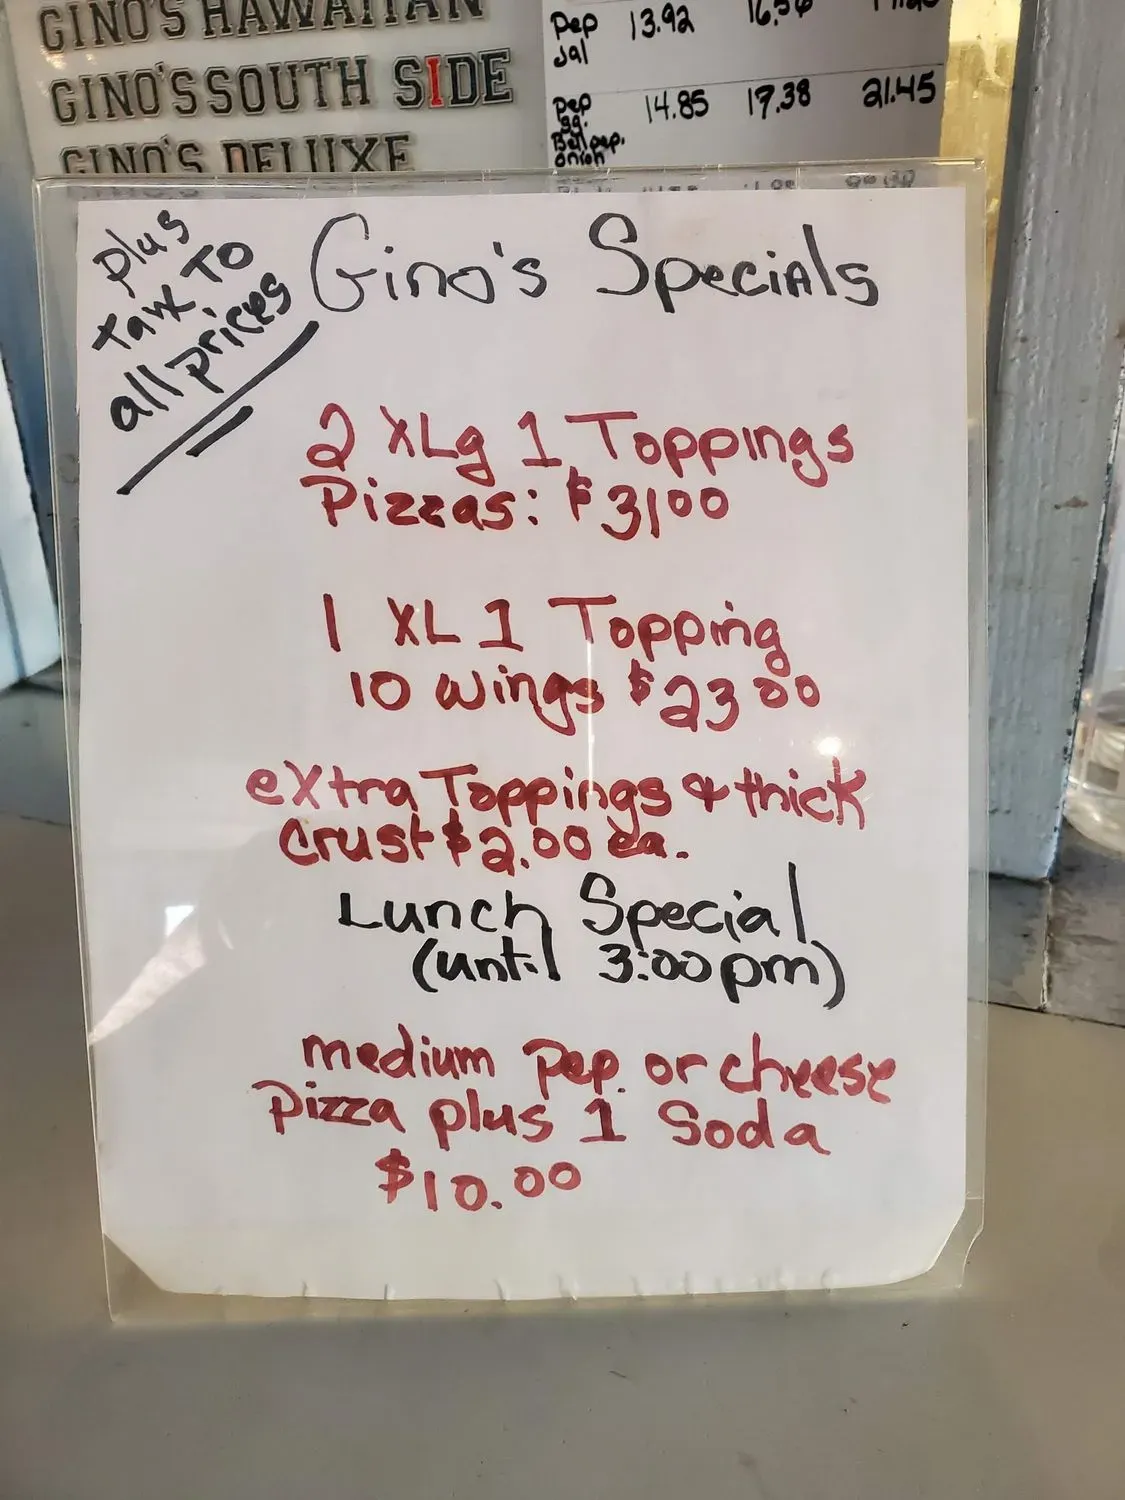 GINO'S HAWAIIAN
GINO'S SOUTH SIDE
GINO'S DELUXE
Pep 13.92 16.56
Jal
Pep 14.85 17.38 21.45
Bell pep.
onion
plus
tax TO
all prices
Gino's Specials
2 XLg 1 Toppings
Pizzas: $3100
1 XL 1 Topping
10 wings $23 00
extra Toppings & thick
Crust $2.00 ea.
Lunch Special
(until 3:00pm)
medium pep. or cheese
Pizza plus 1 Soda
$10.00